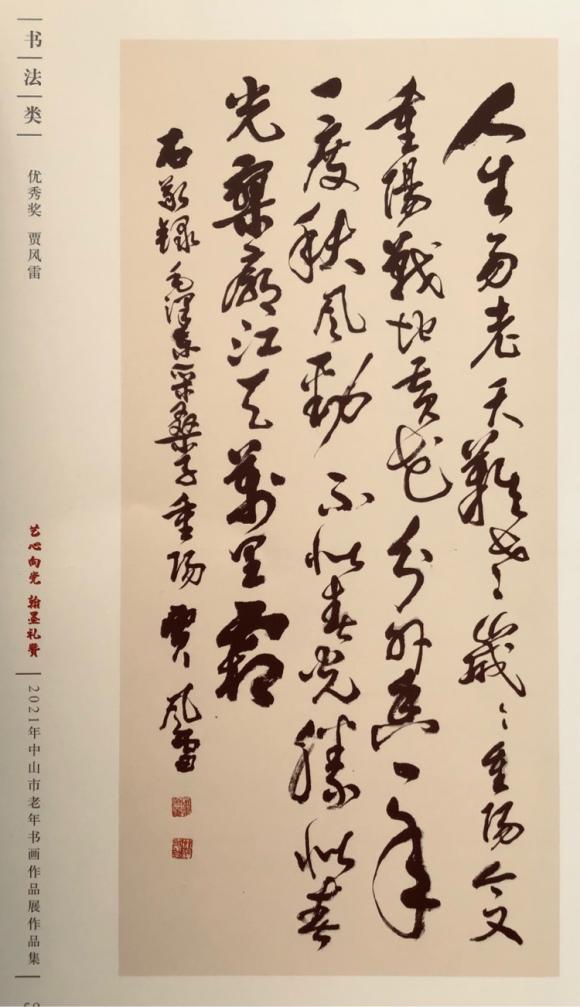 书法类
优秀奖 贾风雷
人生易老天難老歲〻重陽今又
重陽戰地黄花分外香一年
一度秋風勁不似春光勝似春
光寥廓江天萬里霜
右敬録毛澤東采桑子重陽 賈風雷
艺心向党 翰墨礼赞
2021年中山市老年书画作品展作品集